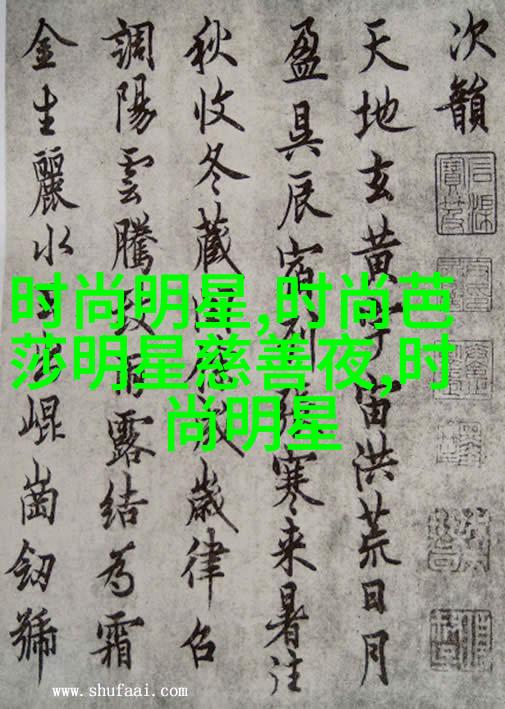 次韻
天地玄黄宇宙洪荒日月
盈昃辰宿列張寒来暑往
秋收冬藏閏餘成歲律召
調陽雲騰致雨露結為霜
金生麗水玉出崐崗劒號
时尚明星,时尚芭
莎明星慈善夜,时
尚明星
www.shufaai.com